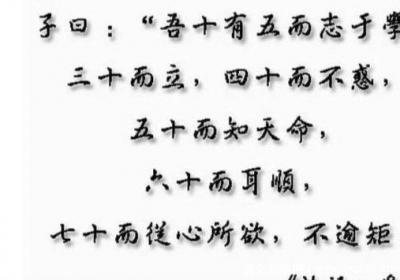 子曰：“吾十有五而志于學
三十而立，四十而不惑，
五十而知天命，
六十而耳順，
七十而從心所欲，不逾矩